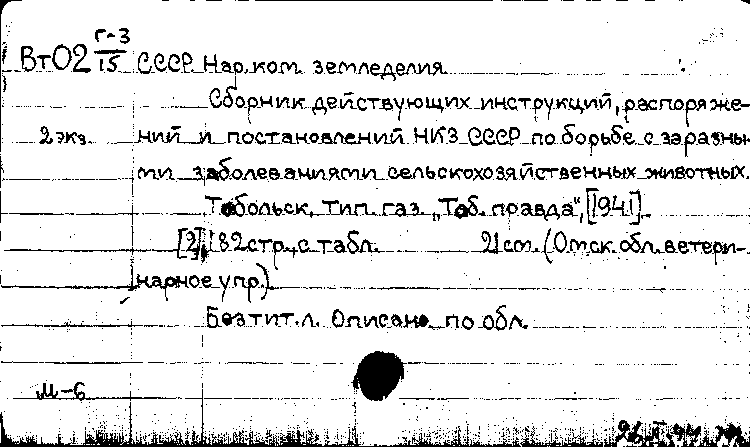 Вт02 Г-3/15 СССР Нар. ком. земледелия
Сборник действующих инструкций, распоряже-
2 экз. ний и постановлений НКЗ СССР по борьбе с заразны-
ми заболеваниями сельскохозяйственных животных.
Тобольск, тип. газ. „Тоб. правда“, [1941].
[2], 182 стр., с табл. 21 cm. (Омск. обл. ветери-
нарное упр.)
Без тит. л. Описано по обл.
М-6